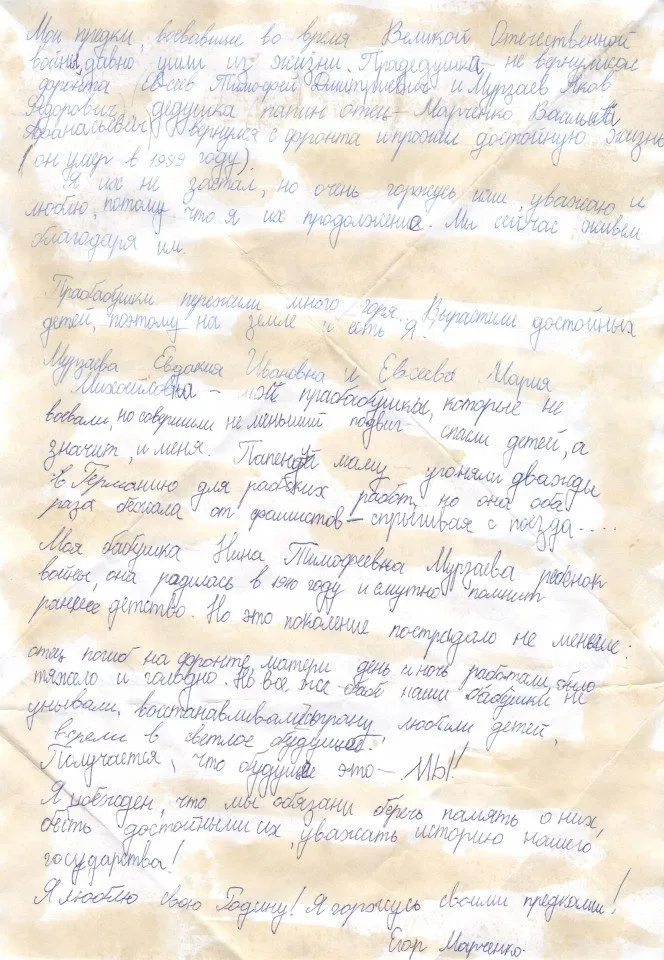 Мои предки, воевавшие во время Великой Отечественной
войны, давно ушли из жизни. Прадедушка не вернулись с
фронта Евсеев Тимофей Дмитриевич и Мурзаев Яков
Федорович, дедушка папин отец – Марченко Василий
Афанасьевич (вернулся с фронта и прожил достойную жизнь,
он умер в 1999 году).
Я их не застал, но очень горжусь ими, уважаю и
люблю, потому что я их продолжение. Мы сейчас живем
благодаря им.
Прабабушки пережили много горя. Вырастили достойных
детей, поэтому на земле и есть Я.
Мурзаева Евдокия Ивановна и Евсеева Мария
Михайловна – мои прабабушки, которые не
воевали, но совершили не меньший подвиг – спасли детей, а
значит, и меня. Папену маму угоняли дважды
в Германию для рабских работ, но она оба
раза бежала от фашистов – спрыгивая с поезда....
Моя бабушка Нина Тимофеевна Мурзаева ребёнок
войны, она радилась в 1940 году и смутно помнит
раннее детство. Но это поколение пострадало не меньше:
отец погиб на фронте, матери день и ночь работали, было
тяжело и голодно. Но все же наши бабушки не
унывали, восстанавливали страну, любили детей,
верели в светлое будущее!
Получается, что будущее это – МЫ!
Я убежден, что мы обязаны беречь память о них,
быть достойными их, уважать историю нашего
государства!
Я люблю свою Родину! Я горжусь своими предками!
Егор Марченко.